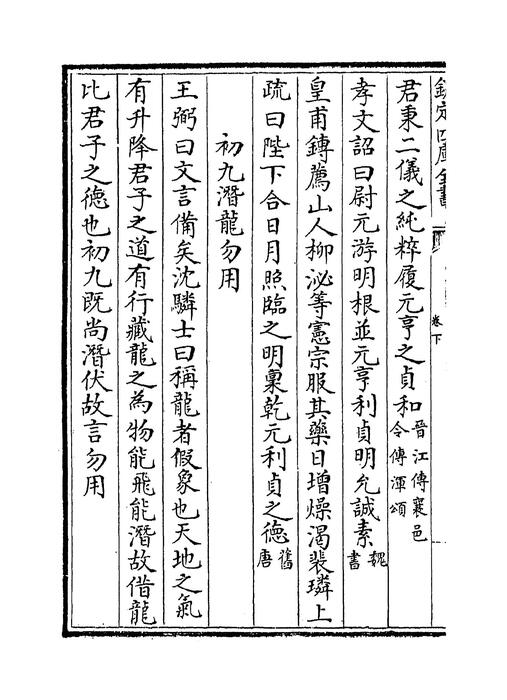 欽定四庫全書
卷下
君秉二儀之純粹履元亨之貞和晉江傳襄邑令傳渾頌
孝文詔曰尉元游明根並元亨利貞明允誠素魏書
皇甫鏄薦山人柳泌等憲宗服其藥日增燥渴裴璘上
疏曰陛下合日月照臨之明稟乾元利貞之德舊唐
初九潛龍勿用
王弼曰文言備矣沈驎士曰稱龍者假象也天地之氣
有升降君子之道有行藏龍之為物能飛能潛故借龍
比君子之德也初九既尚潛伏故言勿用